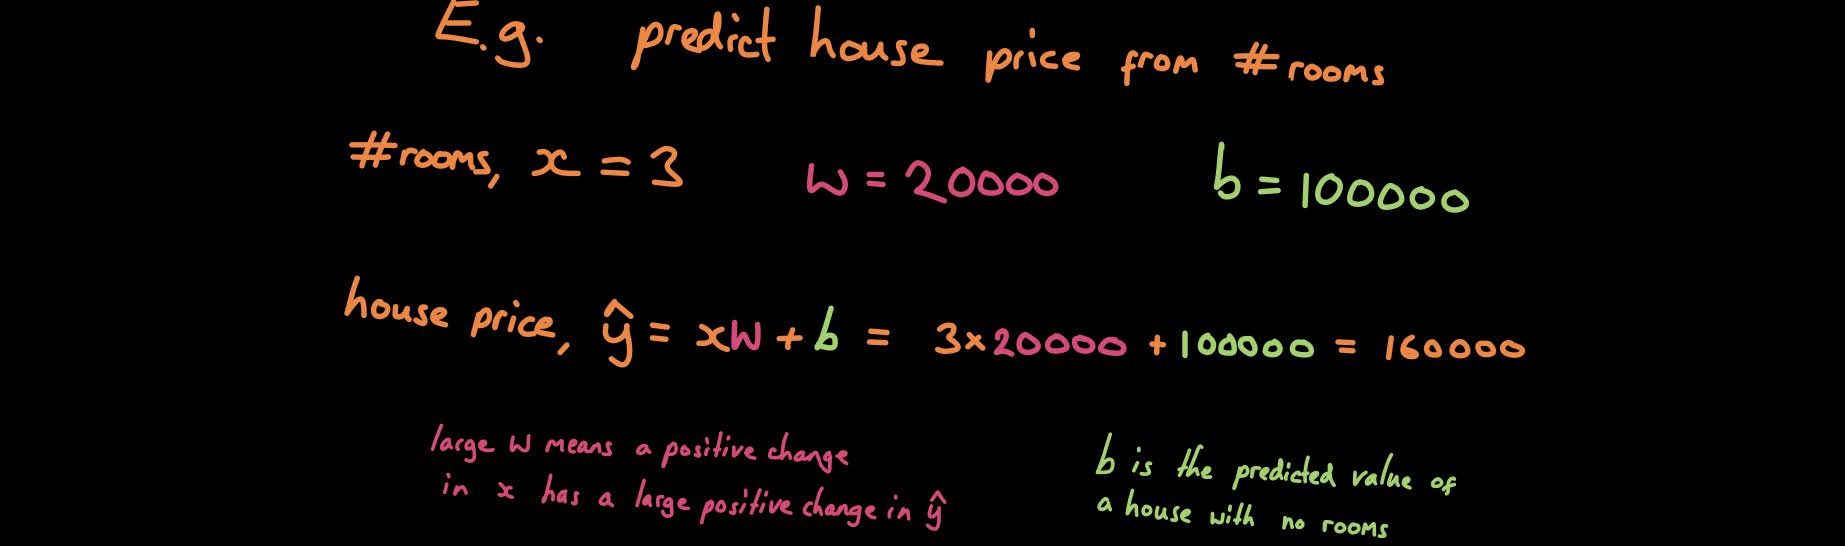 E.g. predict house price from #rooms
#rooms, x = 3 w = 20000 b = 100000
house price, ŷ = xw + b = 3×20000 + 100000 = 160000
large w means a positive change
in x has a large positive change in ŷ
b is the predicted value of
a house with no rooms